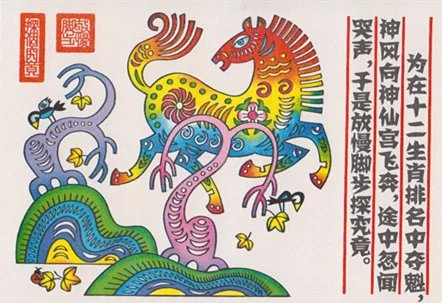 为在十二生肖排名中夺魁，
神风向神仙宫飞奔，途中忽闻
哭声，于是放慢脚步探究竟。